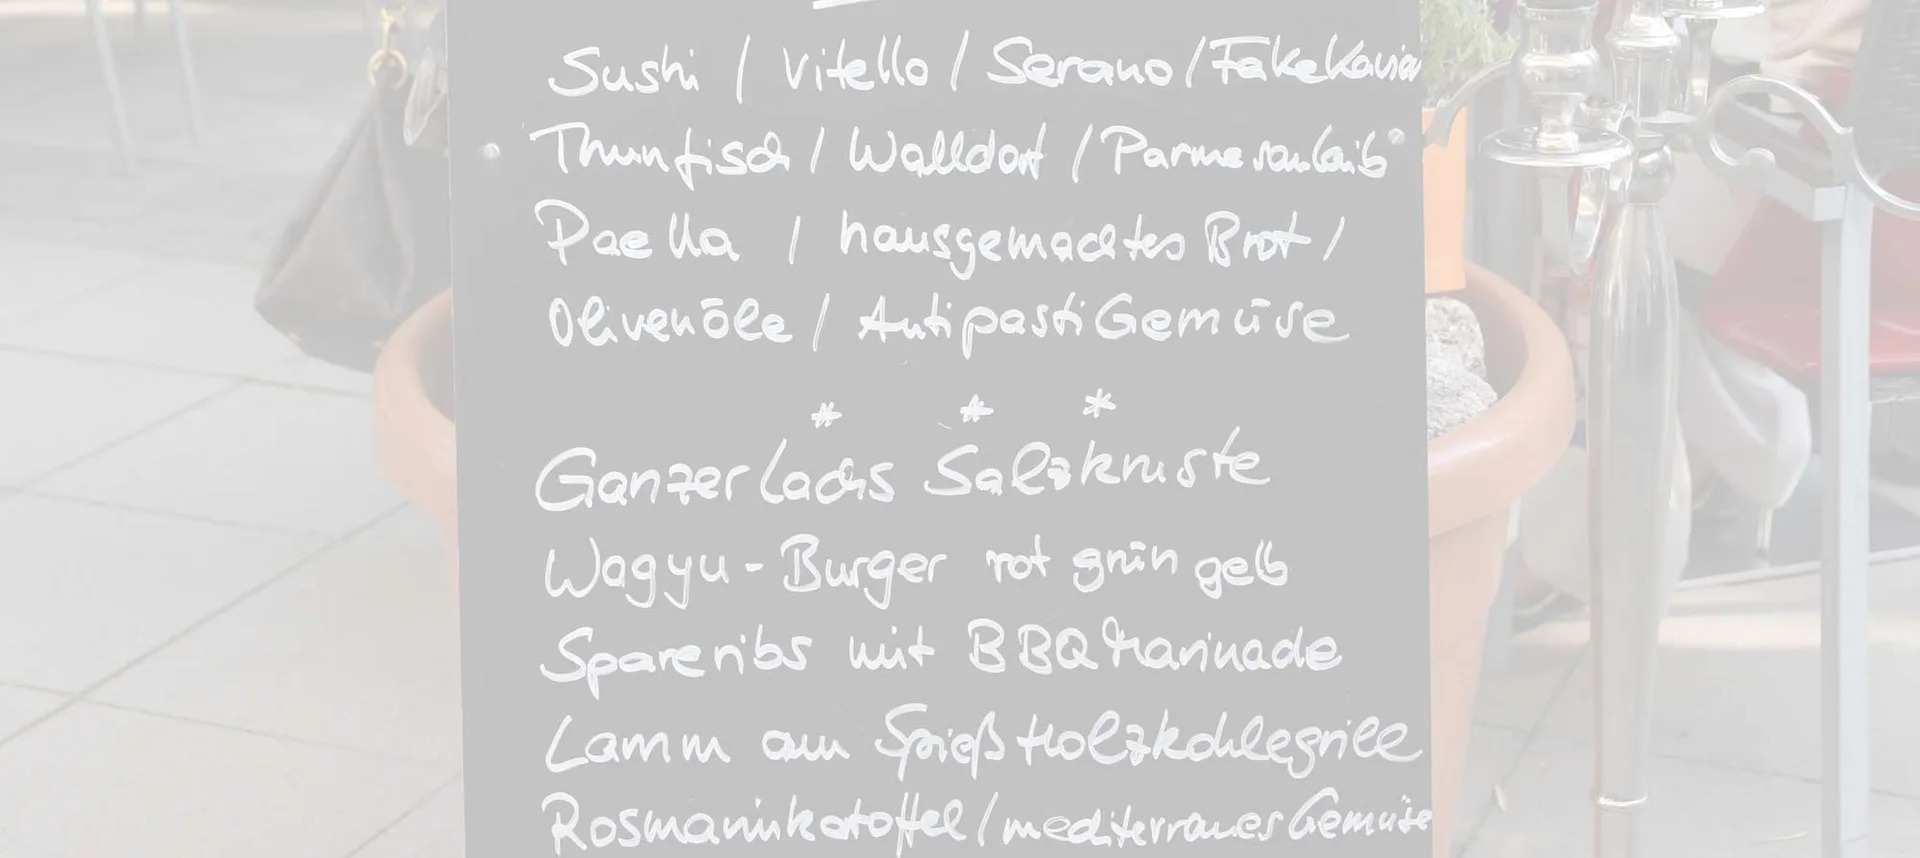 Sushi / Vitello / Serano / FakeKaviar
Thunfisch / Walldorf / Parmesanlaib
Paella / hausgemachtes Brot /
Olivenöle / Antipasti Gemüse
* * *
Ganzer Lachs Salzkruste
Wagyu-Burger rot grün gelb
Spareribs mit BBQ Marinade
Lamm am Spieß Holzkohlegrill
Rosmarinkartoffel / mediterranes Gemüse